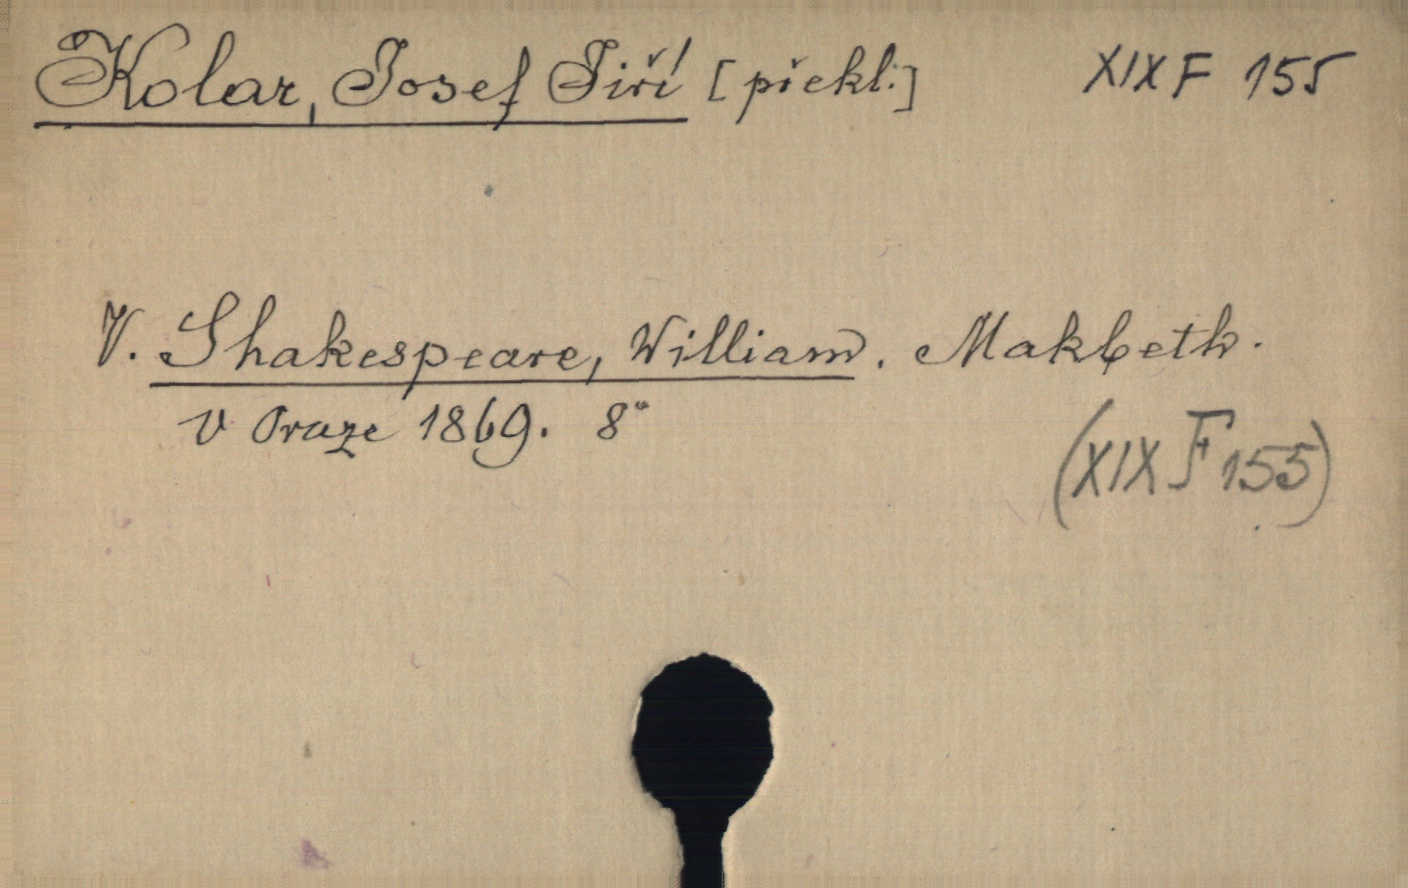 Kolar, Josef Jiří [překl.] XIX F 155
V. Shakespeare, William. Makbeth.
V Praze 1869. 8°
(XIX F 155)